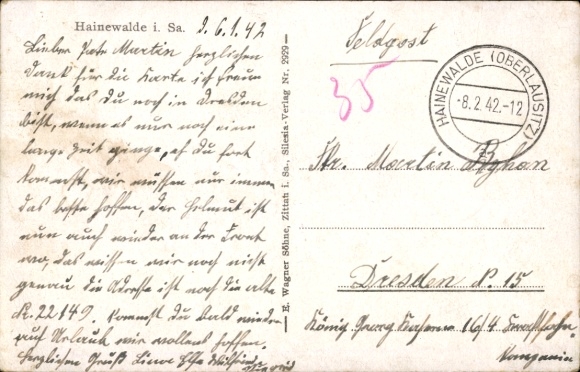 Hainewalde i. Sa. d. 6.1.42
Lieber Pate Martin herzlichen
Dank für die Karte ich freue
mich das du noch in Dresden
bist, wenn es nur noch eine
lange Zeit ginge, eh du fort
kommst, wir müssen nur immer
das beste hoffen, der Helmut ist
nun auch wieder an der Front
wo, das wissen wir noch nicht
genau die Adresse ist noch die alte
Nr. 22149. kommst du bald wieder
auf Urlaub wir wollens hoffen.
Herzlichen Gruß Else
E. Wagner Söhne, Zittau i. Sa., Silesia-Verlag Nr. 2929
Feldpost
35
HAINEWALDE (OBERLAUSITZ)
-8.2.42.-12
Martin
Dresden N. 15
König Georg Kaserne 16/4
Kompanie